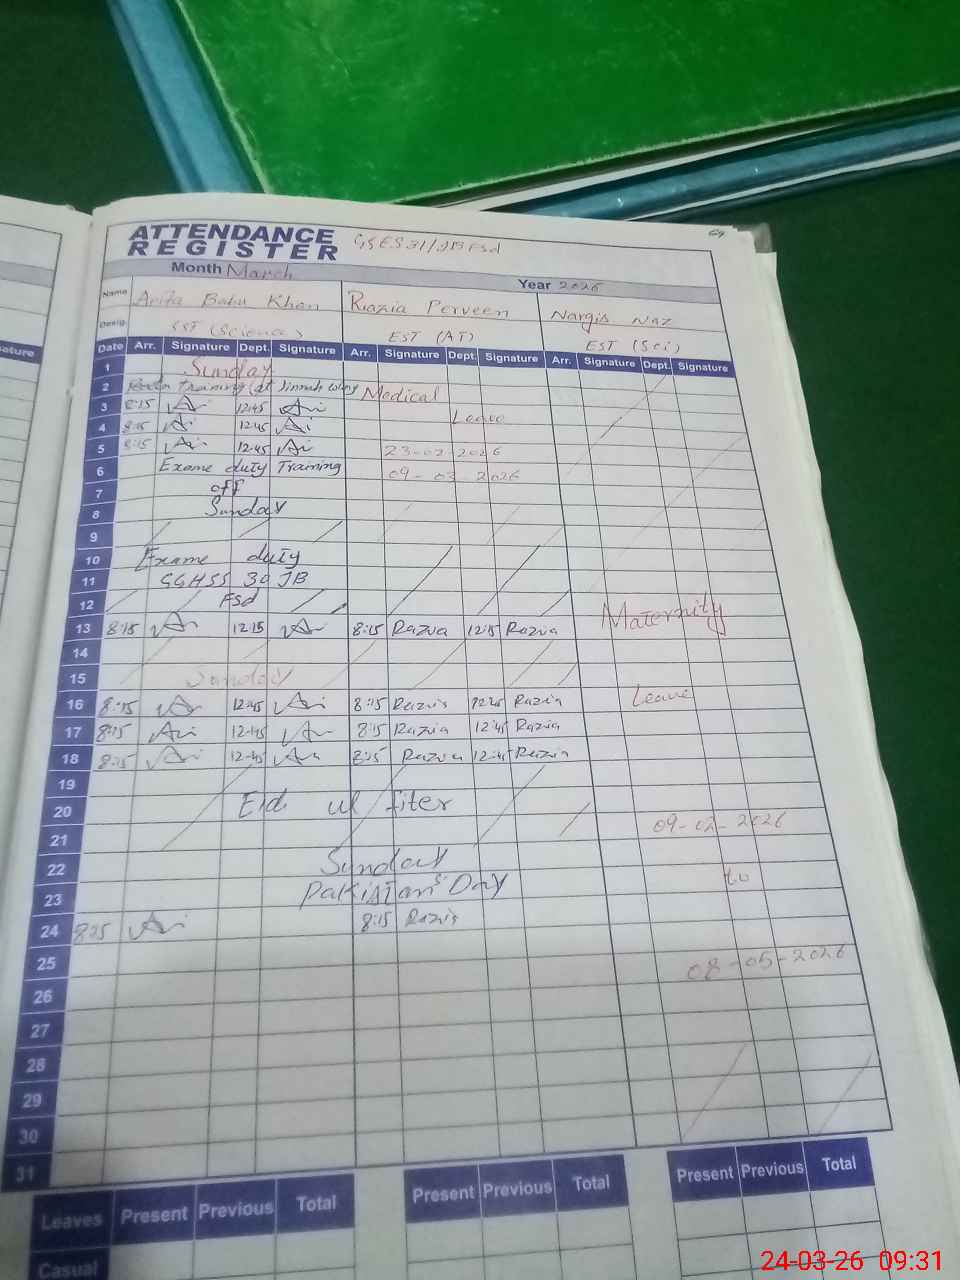 ATTENDANCE
REGISTER
GGES 31/JB Fsd
69
Month March
Year 2026
Name Arifa Babu Khan Riazia Perveen Nargis Naz
Desig. SST (Science) EST (AT) EST (Sci)
ature
Date Arr. Signature Dept. Signature Arr. Signature Dept. Signature Arr. Signature Dept. Signature
1 Sunday
2 Training (at Jinnah colony Medical
3 8:15 12:45 Leave
4 8:15 12:45
5 8:15 12:45 23-02-2026
6 Exame duty Training 09-03-2026
7 off
8 Sunday
9
10 Exame duty
11 GGHSS 30 JB
12 Fsd Maternity
13 8:15 12:15 8:15 Razua 12:15 Razia
14
15 Sunday
16 8:15 12:45 8:15 Razia 12:45 Razia Leave
17 8:15 12:45 8:15 Razia 12:45 Razia
18 8:15 12:45 8:15 Razua 12:45 Razia
19
20 Eid ul fiter
21 09-02-2026
22 Sunday
23 Pakistan's Day to
24 8:15 8:15 Razia
25 08-05-2026
26
27
28
29
30
31
Leaves Present Previous Total Present Previous Total Present Previous Total
Casual
24-03-26 09:31